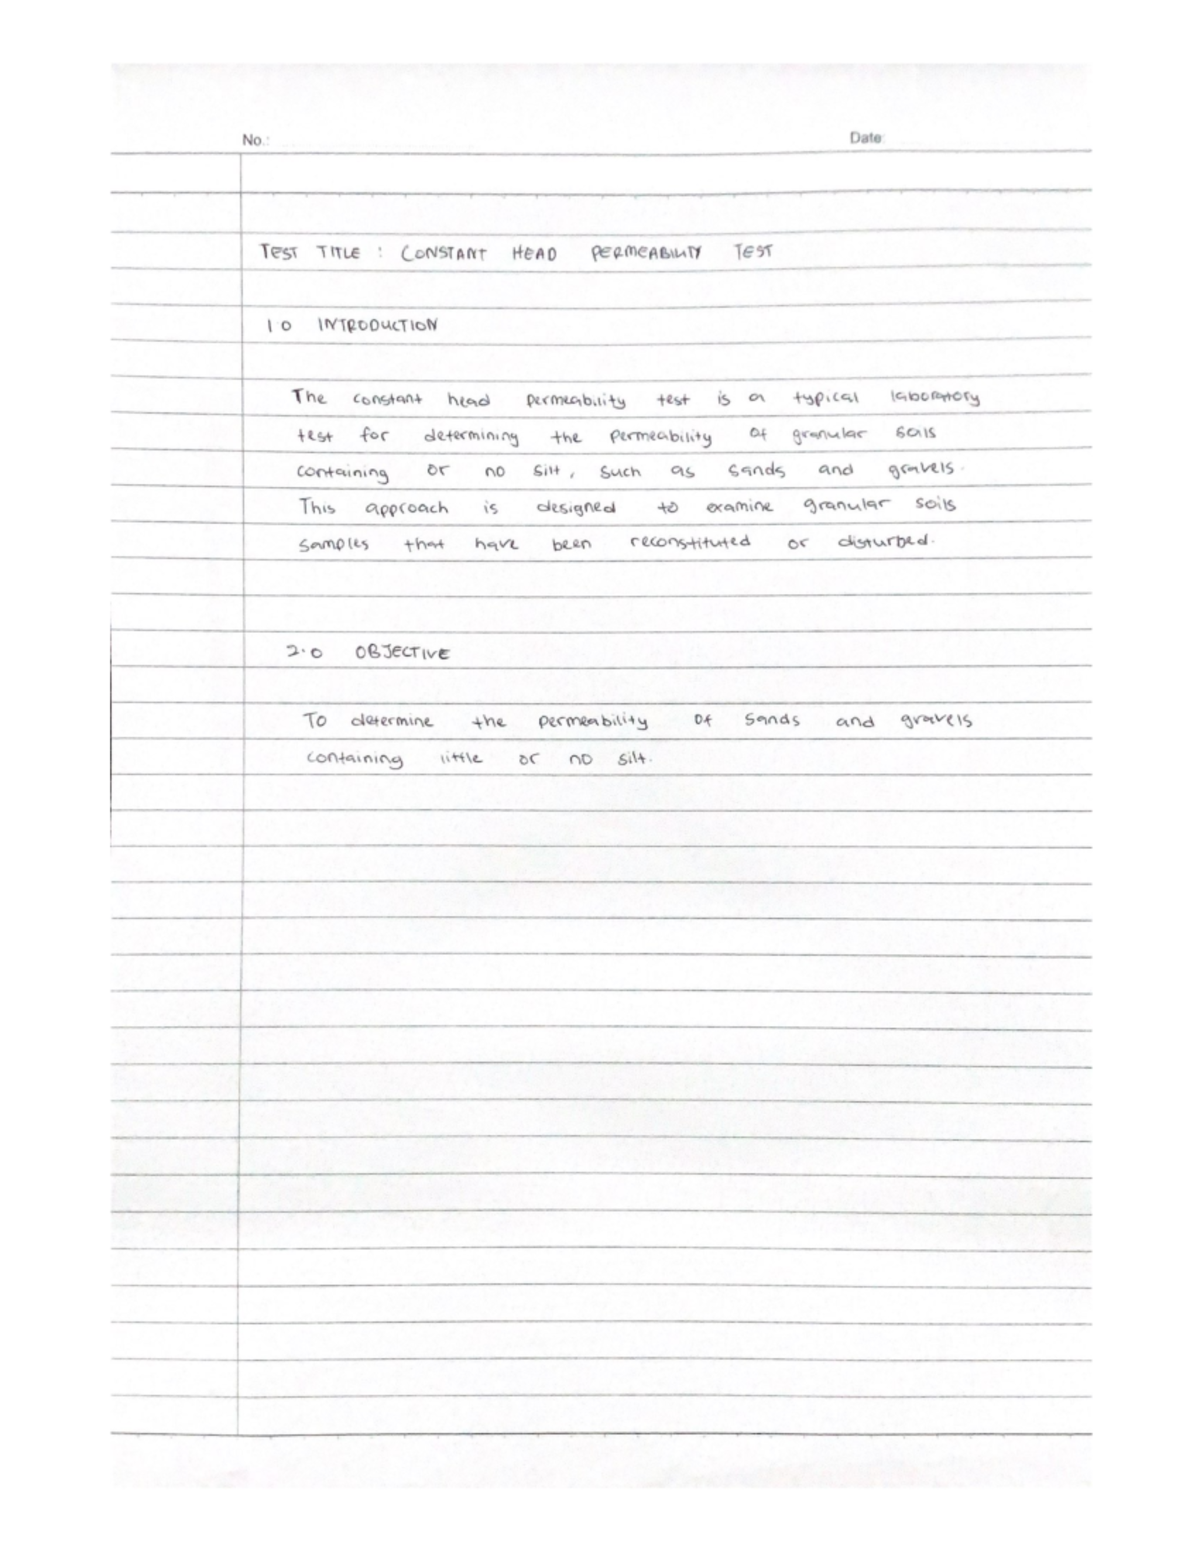 No.:
Date:
TEST TITLE : CONSTANT HEAD PERMEABILITY TEST
1.0 INTRODUCTION
The constant head permeability test is a typical laboratory
test for determining the permeability of granular soils
containing or no silt, such as sands and gravels.
This approach is designed to examine granular soils
samples that have been reconstituted or disturbed.
2.0 OBJECTIVE
To determine the permeability of sands and gravels
containing little or no silt.